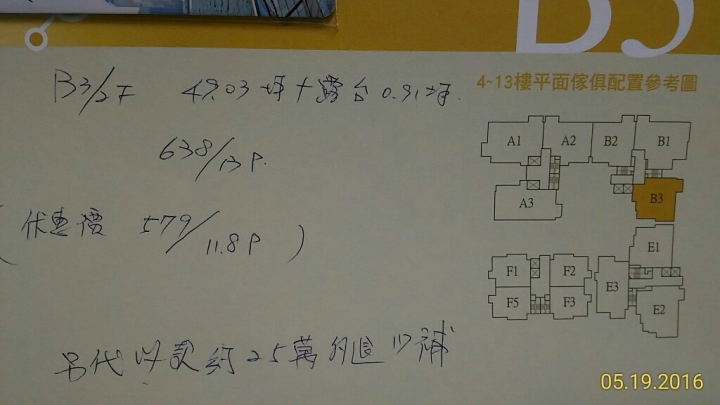 B3
B3/2F 49.03坪+露台0.91坪.
638/13P.
(優惠價 579/11.8P)
另代收款約25萬多退少補
4~13樓平面傢俱配置參考圖
A1 A2 B2 B1
A3 B3
E1
F1 F2 E3
F5 F3 E2
05.19.2016